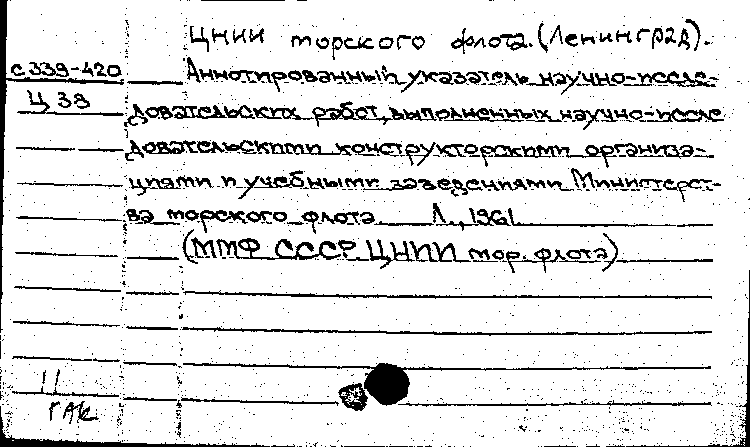 ЦНИИ морского флота. (Ленинград).
с339-420 Аннотированный указатель научно-иссле-
Ц 39 довательских работ, выполненных научно-иссле
довательскими конструкторскими организа-
циями и учебными заведениями Министерст-
ва морского флота Л., 1961.
(ММФ СССР. ЦНИИ мор. флота)
11
ГАК